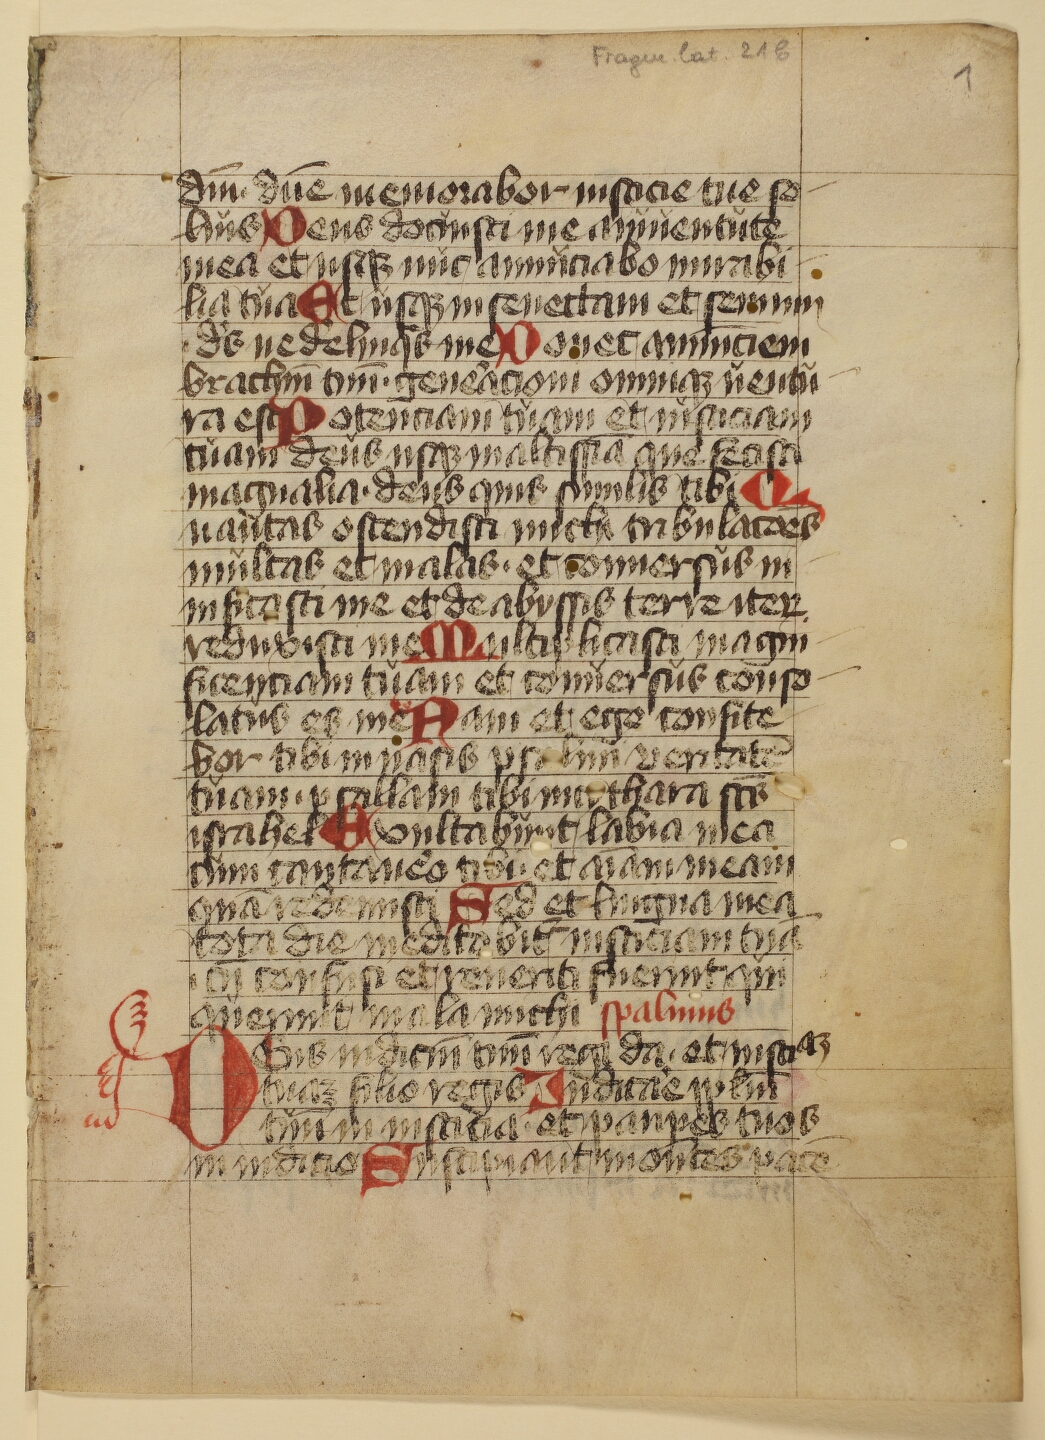 Fragm. lat. 21 b
1
dnī. dn̄e memorabor iusticie tue so
lius Deus docuisti me a iuuentute
mea et usqꝫ nūc annūciabo mirabi
lia tua Et usqꝫ in senectam et senium
ds̄ ne delinqͣs me Donec annūciem
brachiū tuū. gen̄eacioni omniqꝫ uentu
ra est Potenciam tuam et iusticiam
tuam deus usqꝫ in altissīa que fecisti
magnalia. deus quis similis tibi Q
uantas ostendisti michi tribulacōes
multas et malas. et conuersus ui
uificasti me et de abyssis terre iter
reduxisti me Multiplicasti magni
ficenciam tuam et conuersus conso
latus es me Nam et ego confite
bor tibi in uasis psalmi veritatē
tuam. psallam tibi in cythara sc̄s
israhel Exultabunt labia mea
cum cantauero tibi. et aīam meam
quā redemisti Sed et lingua mea
tota die meditabit᷑ iusticiam tuā
cū confusi et reueriti fuerint qui
querunt mala michi spalmus
Deus iudiciū tuū regi da. et iusticiā
tuaꝫ filio regis Iudicare pplm̄
tuū in iusticia. et pauperes tuos
in iudicio Suscipiant montes pacē